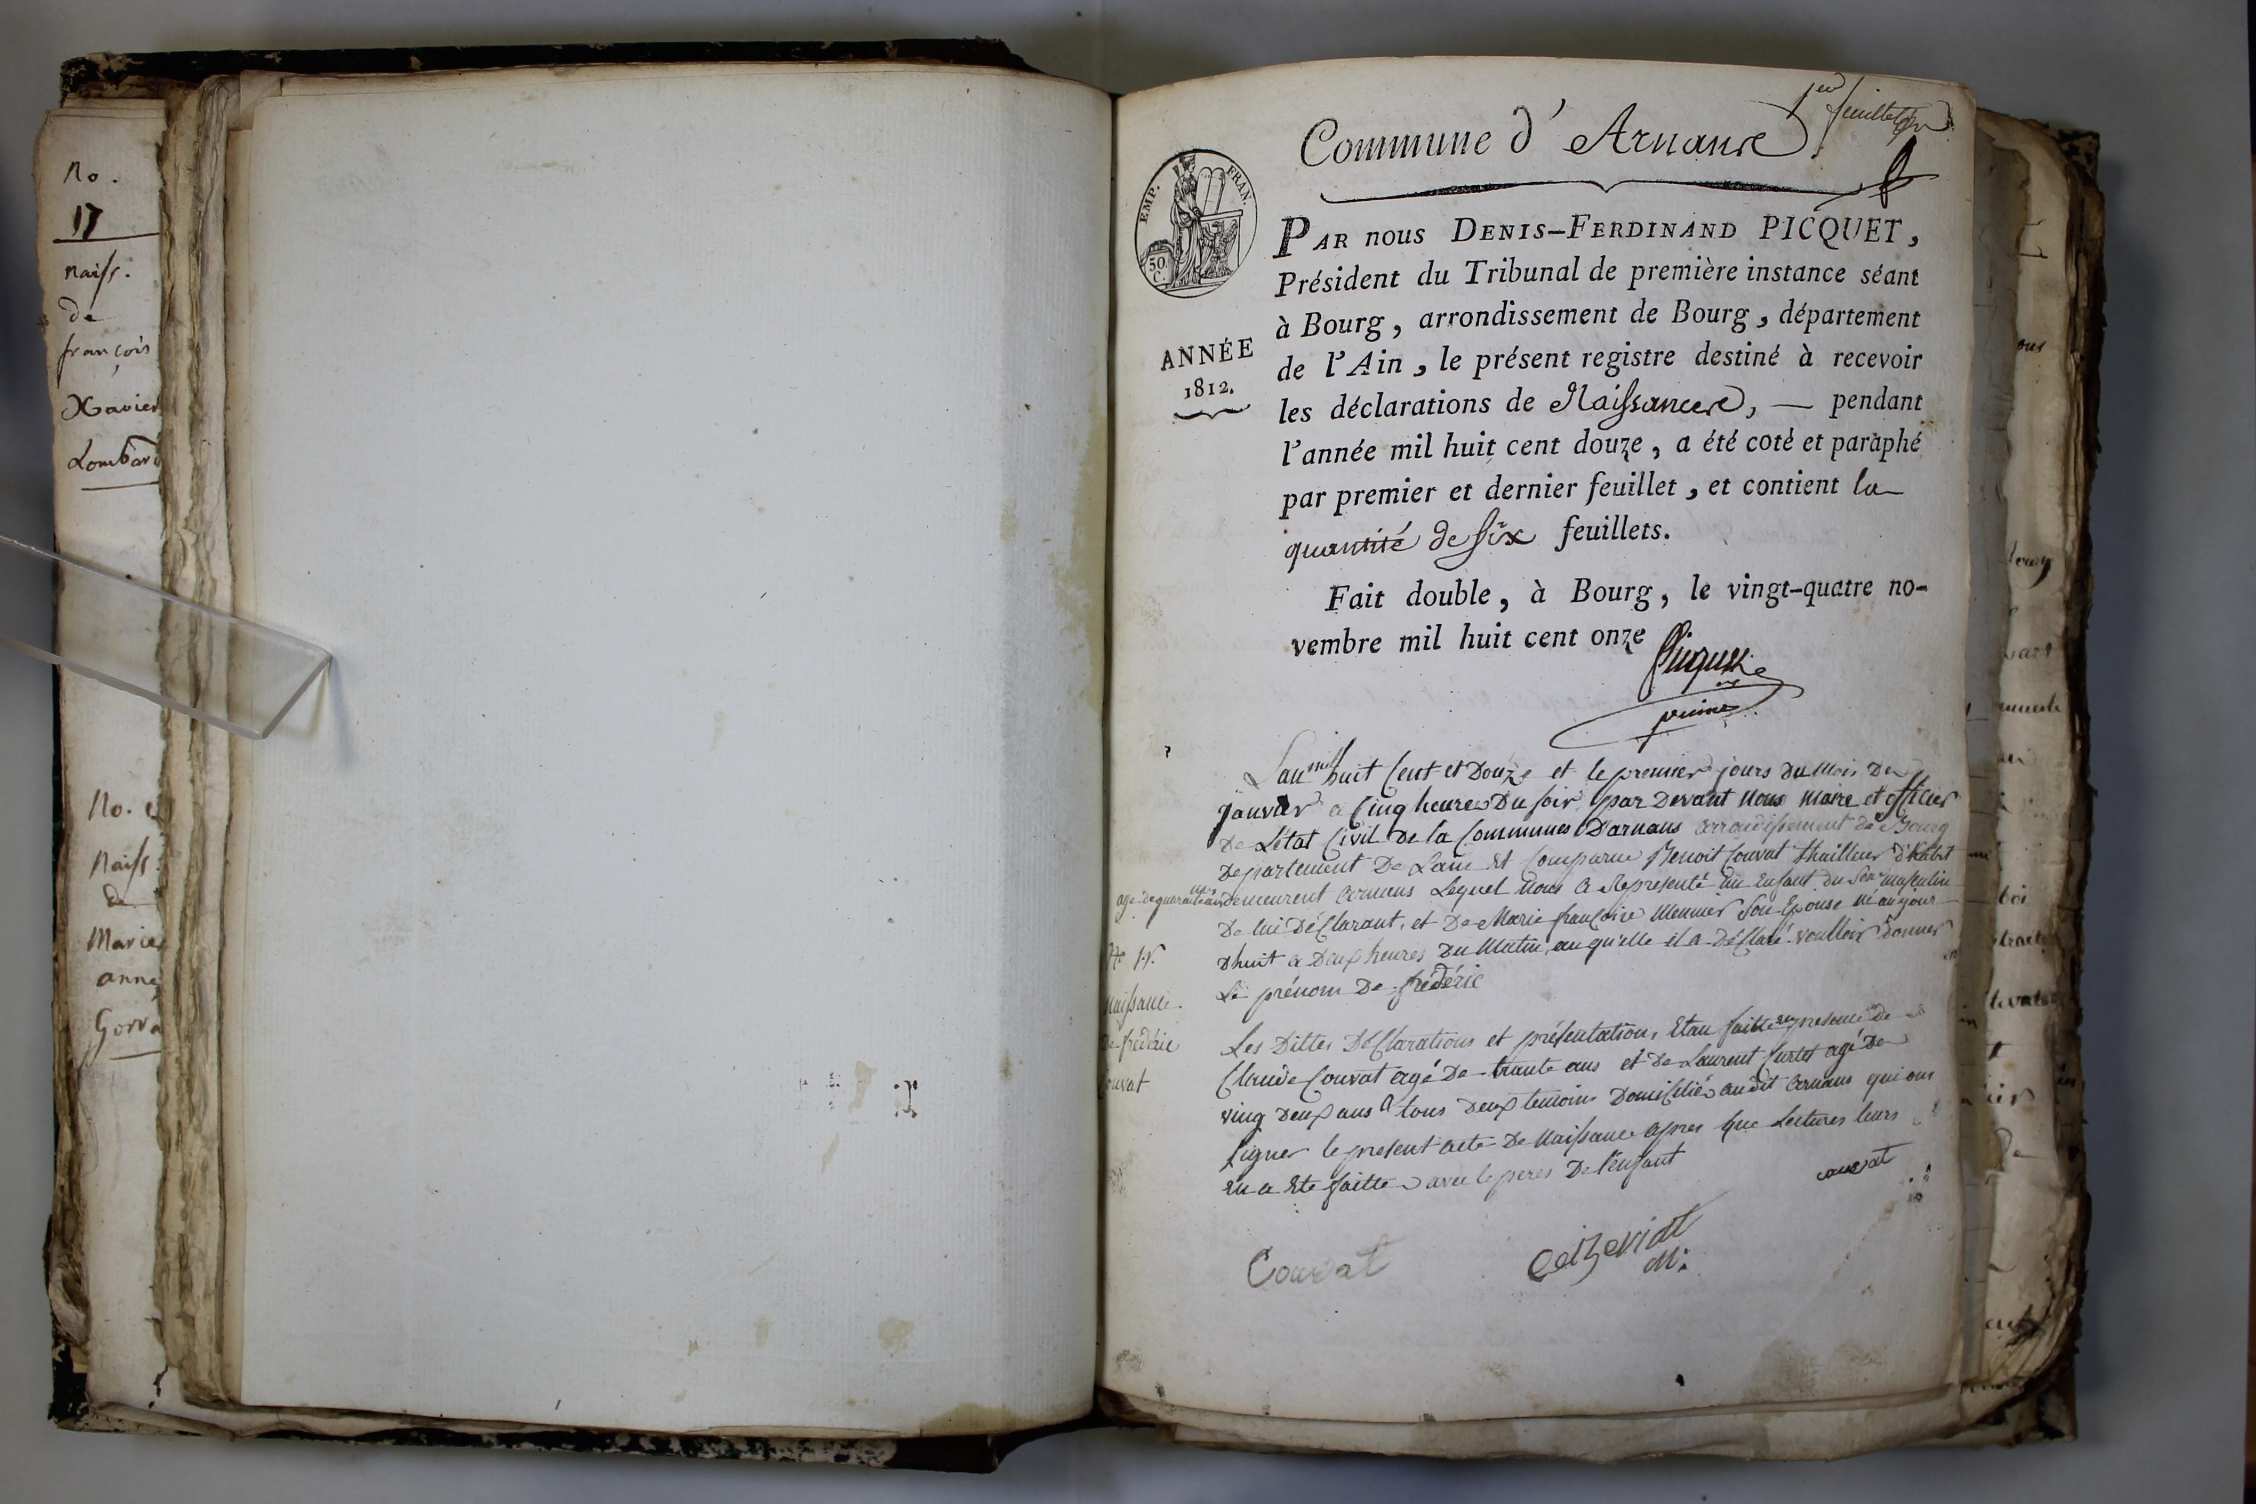 No.
17
naiss.
de
françois
Xavier
Lombard
No.
Naiss.
de
Marie
anne
1er feuillet
Commune d'Arnans
EMP. FRAN.
50
C.
PAR nous DENIS-FERDINAND PICQUET,
Président du Tribunal de première instance séant
à Bourg, arrondissement de Bourg, département
ANNÉE
1812.
de l'Ain, le présent registre destiné à recevoir
les déclarations de Naissances, — pendant
l'année mil huit cent douze, a été coté et paraphé
par premier et dernier feuillet, et contient la
quantité de six feuillets.
Fait double, à Bourg, le vingt-quatre no-
vembre mil huit cent onze
Picquet
Lan mil huit Cent et Douze et le premier jours du Mois De
Janvier a Cinq heures Du soir par Devant Nous Maire et officier
De Létat Civil De la Communes D'arnans arrondissement de Bourg
Departement De Lain Et Comparue Benoit Couvat thailleur d'habit
age de quarante
demeurent arnans Lequel Nous a Representé un Enfant du sexe masculin
De lui Déclarant, et De Marie françoise Meunier son Epouse né aujour
dhuit a Deux heures Du Matin, au qu'elle il a Déclaré voulloir Donner
Le prénom De frédéric
No 1er
Naissance
De frédéric
Couvat
Les Dittes Déclarations et présentation, Etan faitte en presence de
Claude Couvat agé De trante ans et de Laurent Curtet agé De
ving Deux ans tous Deux temoins Domicilié audit arnans qui ons
signer le present acte De Naissance apres que Lectures leurs
en a Ete faitte avec le peres De l'enfant
couvat
Couvat